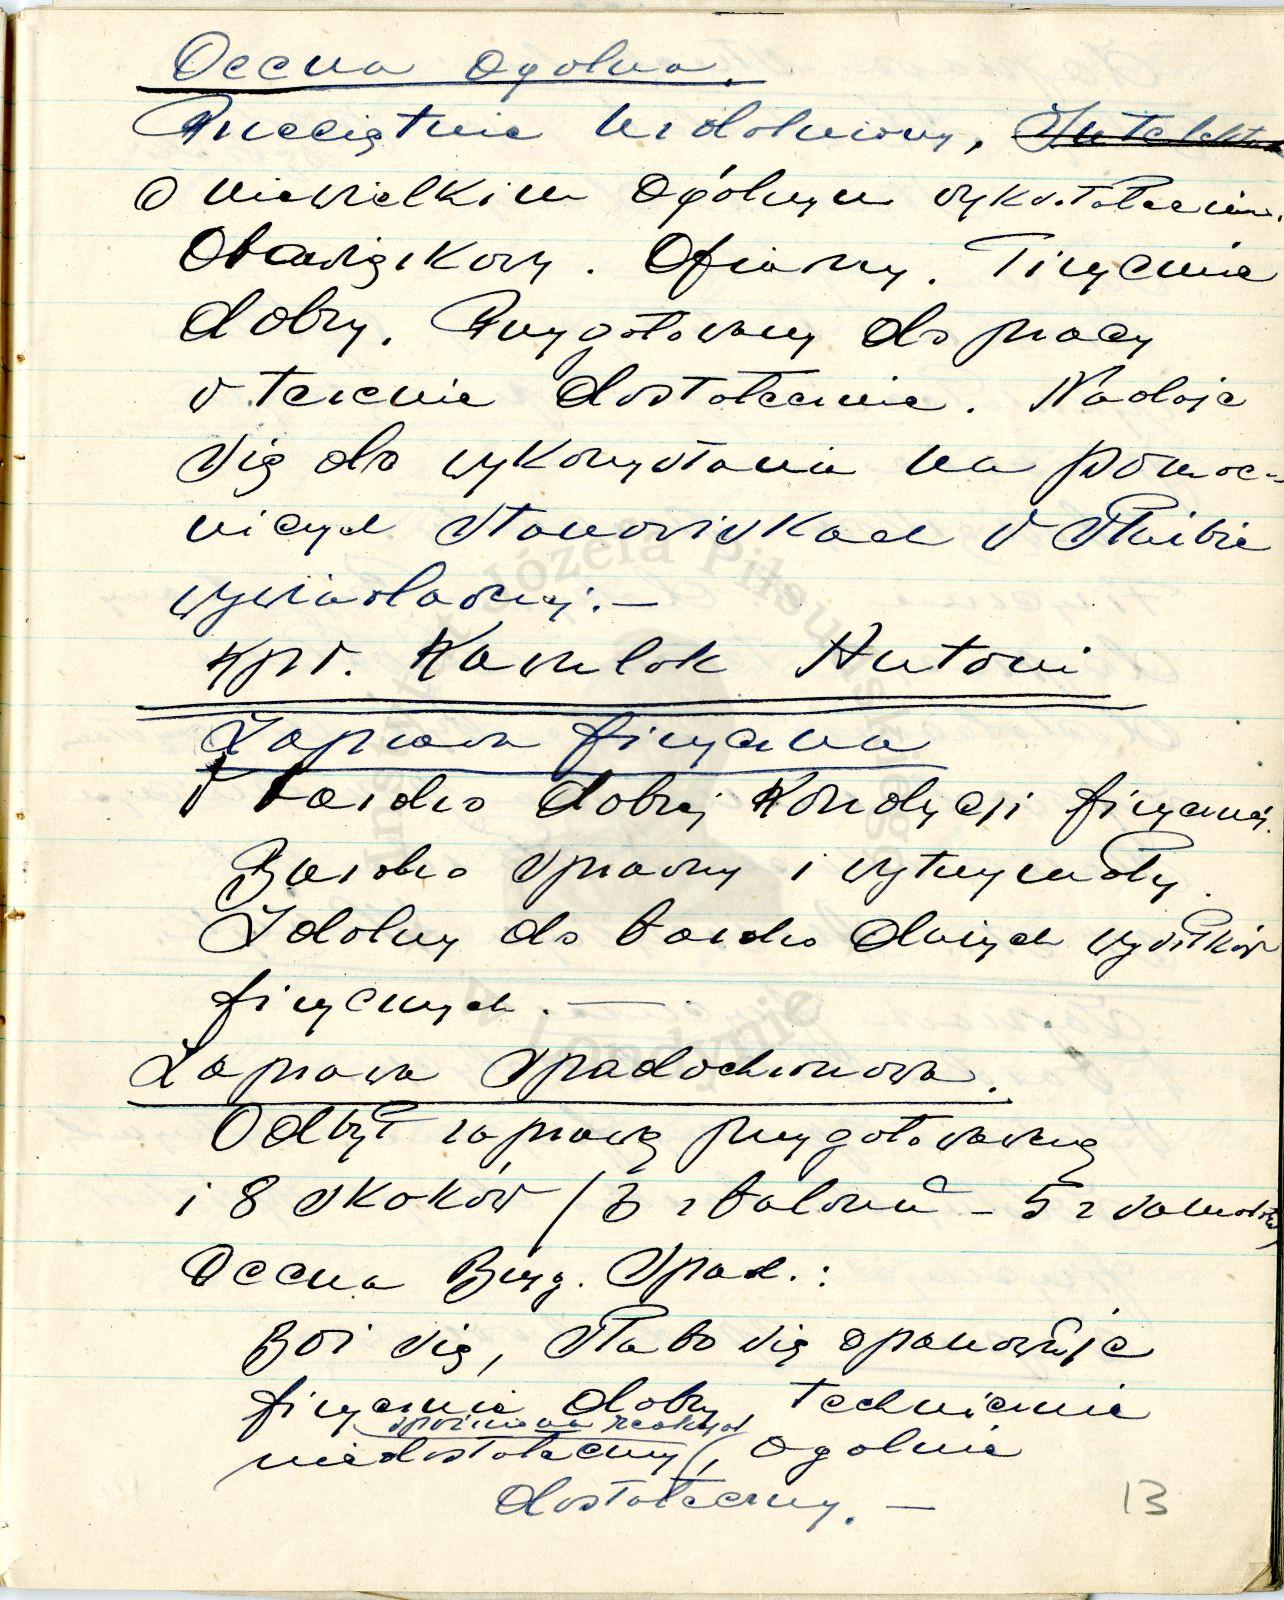 Ocena Ogólna.
Przeciętnie uzdolniony, Intelektu
o niewielkim ogólnym wykształceniu.
Obowiązkowy. Ofiarny. Fizycznie
dobry. Przygotowany do pracy
w terenie dostatecznie. Nadaje
się do wykorzystania na pomoc-
niczych stanowiskach w służbie
wywiadowczej.—
kpr. Kawulok Antoni
Zaprawa fizyczna
W bardzo dobrej kondycji fizycznej.
Bardzo sprawny i wytrzymały.
Zdolny do bardzo dużych wysiłków
fizycznych. —
Zaprawa Spadochronowa.
Odbył zaprawę przygotowawczą
i 8 skoków / 3 z balonu - 5 z samolotu/
Ocena Bryg. Spad.:
Boi się, słabo się opanowuje
fizycznie dobry, technicznie
spóźniona reakcja
niedostateczny, ogólnie
dostateczny. —
13
Instytut Józefa Piłsudskiego
w Londynie